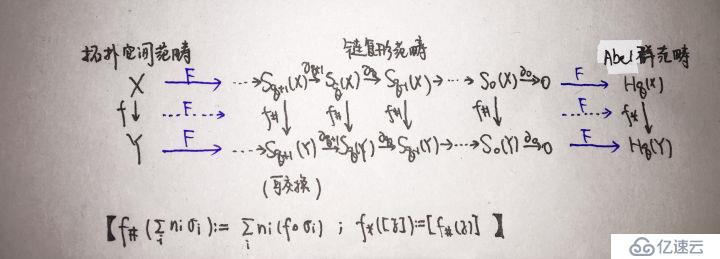 拓扑空间范畴 链复形范畴 Abel群范畴
X F ⋯→ S_{q+1}(X) ∂_{q+1}→ S_q(X) ∂_q→ S_{q-1}(X) →⋯→ S_0(X) ∂_0→ 0 F H_q(X)
f↓ F f_#↓ f_#↓ f_#↓ f_#↓ F f_*↓
Y F ⋯→ S_{q+1}(Y) ∂_{q+1}→ S_q(Y) ∂_q→ S_{q-1}(Y) →⋯→ S_0(Y) ∂_0→ 0 F H_q(Y)
(可交换)
【f_#(∑_i n_i σ_i) := ∑_i n_i(f∘σ_i) ; f_*([z]) := [f_#(z)] 】
亿速云